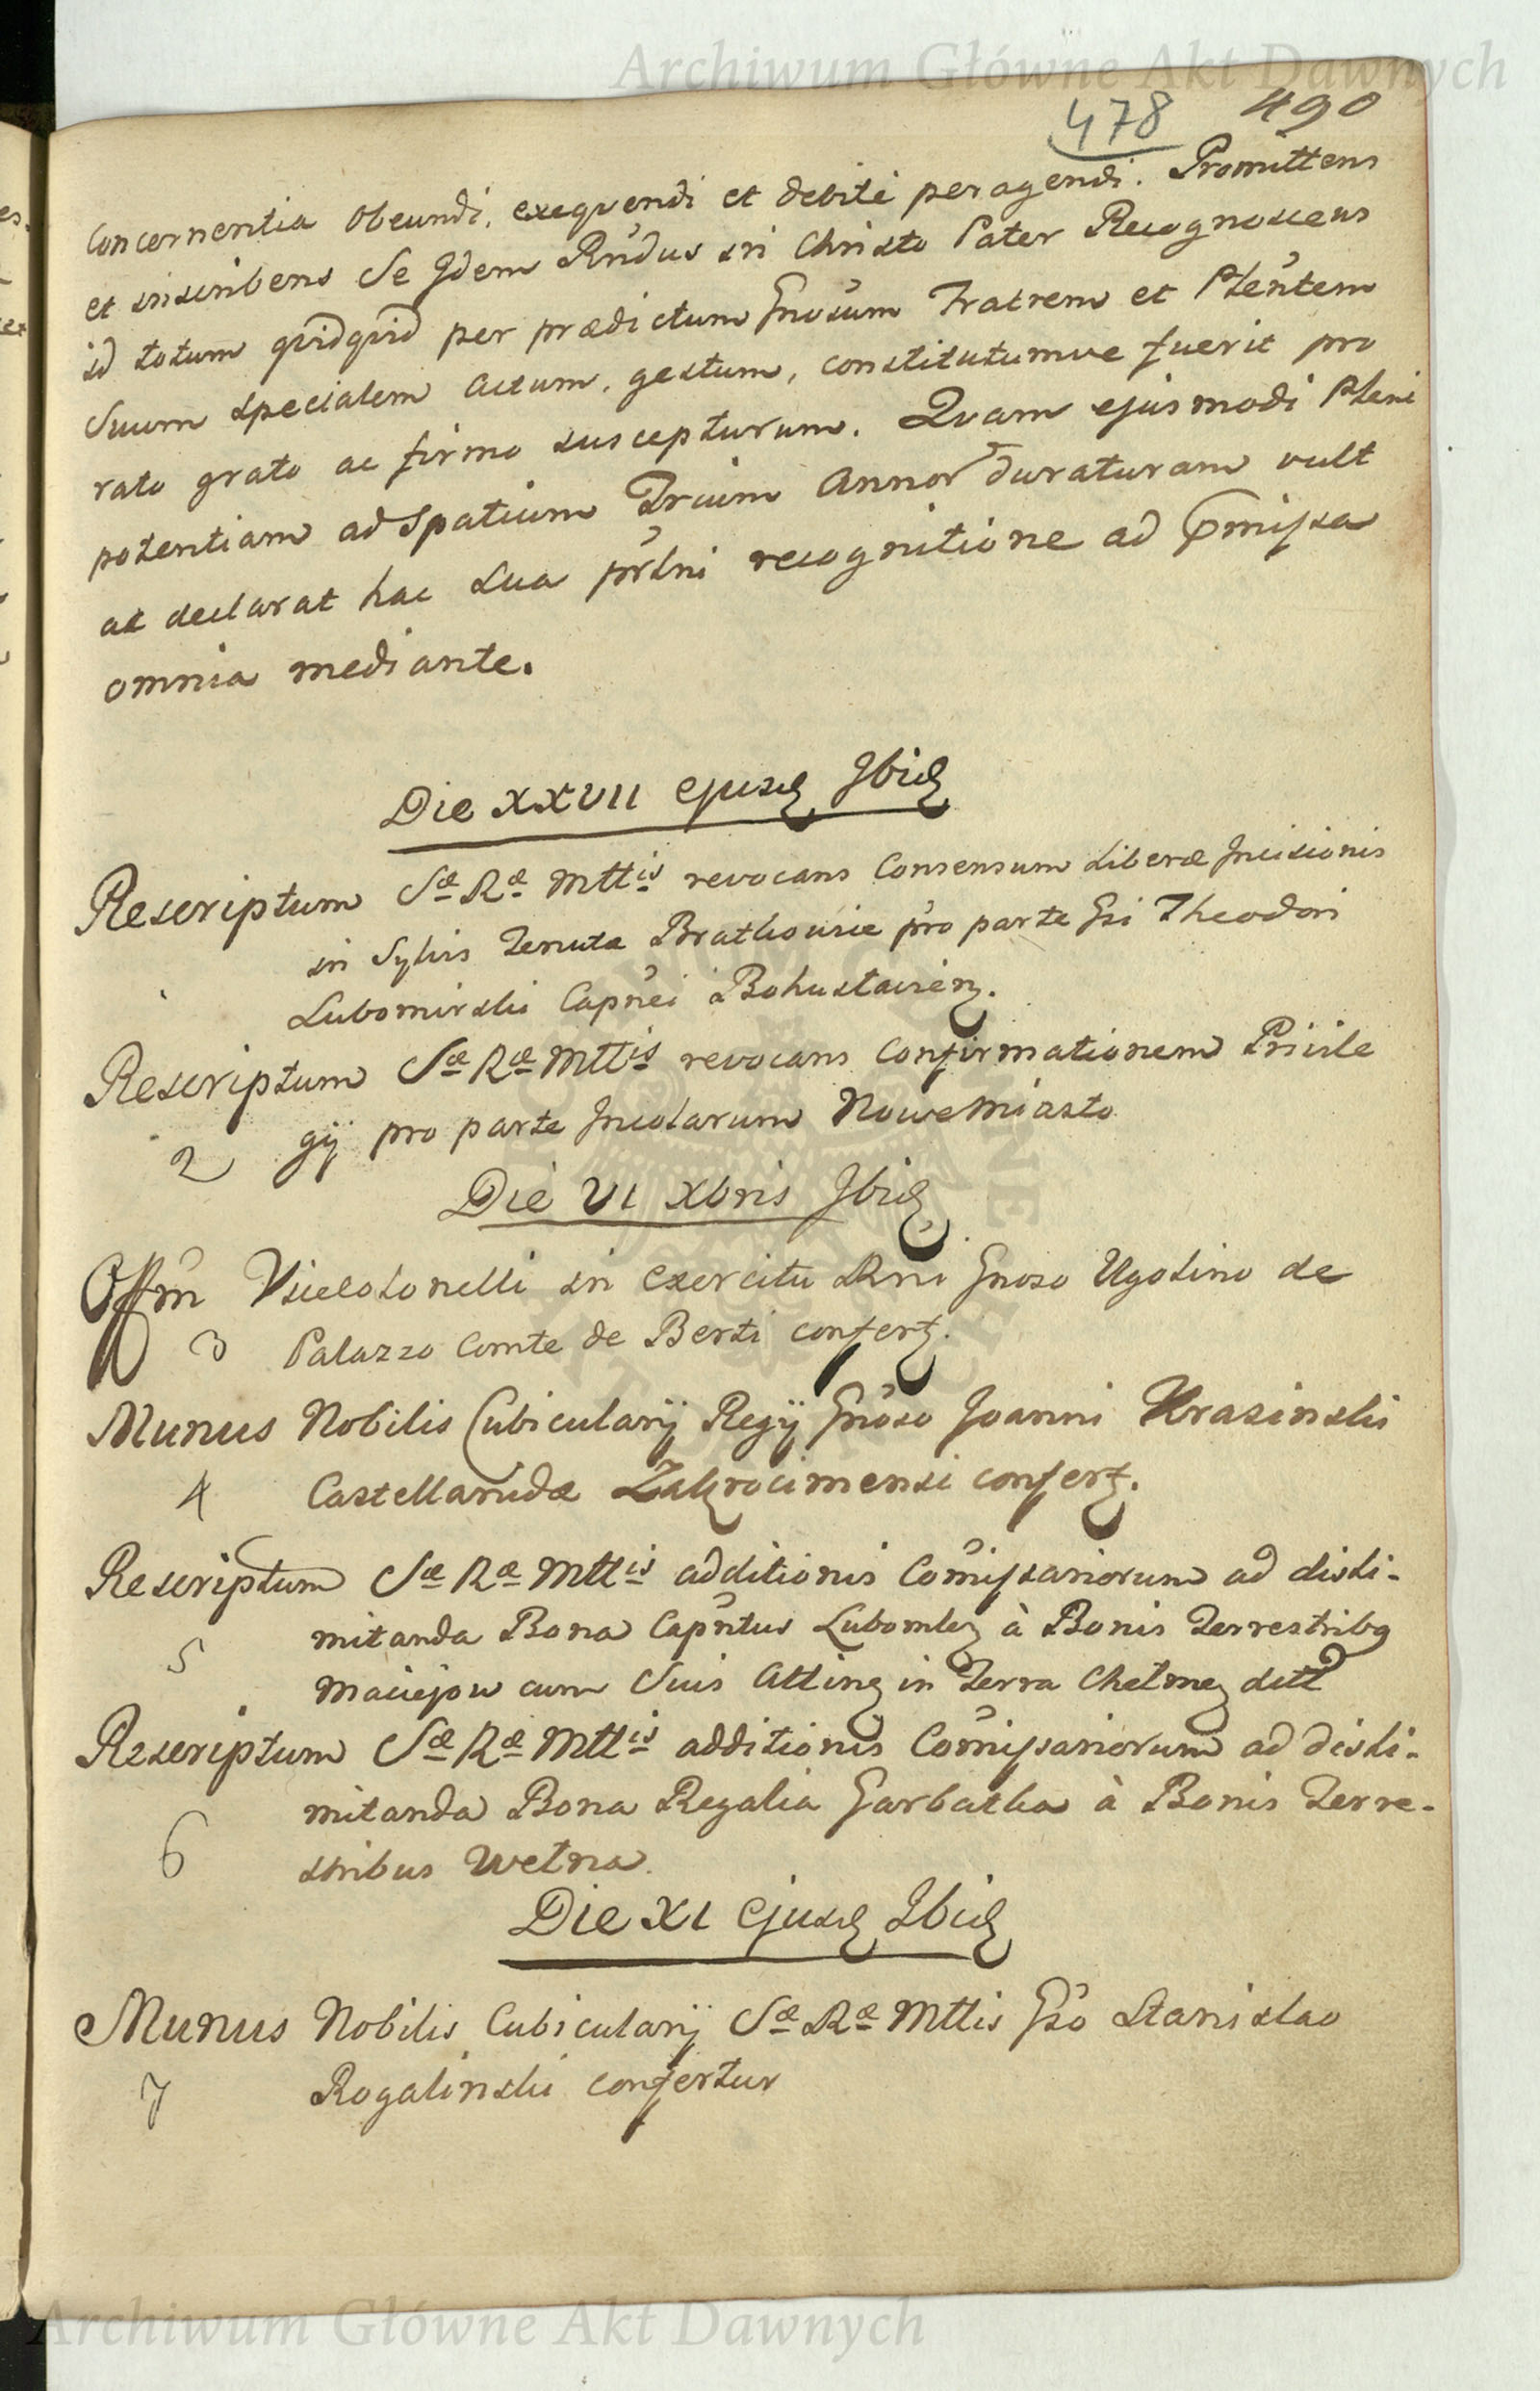 Archiwum Główne Akt Dawnych
478 490
Concernentia obeundi, exequendi et debitè peragendi. Promittens
et inscribens Se Idem Rndus in Christo Pater Recognoscens
id totum quidquid per prædictum Gnosum Fratrem et Plentem
Suum specialem actum, gestum, constitutumve fuerit pro
rato grato ac firmo suscepturum. Quam ejusmodi Pleni
potentiam ad Spatium Trium Annor duraturam vult
ac declarat hac sua prsni recognitione ad pmissa
omnia mediante.
Die XXVII ejusd Ibid
Rescriptum Sæ Ræ Mttis revocans Consensum Liberæ Incisionis
in Sylvis Tenutæ Bratkowie pro parte Gsi Theodori
Lubomirski Capnei Bohustavien.
Rescriptum Sæ Ræ Mttis revocans Confirmationem Privile
2 gij pro parte Incolarum Nowe Miasto
Die VI Xbris Ibid
Offm Vicelolonelli in Exercitu Rni Gnoso Ugolino de
3 Palazzo Comte de Berti confert.
Munus Nobilis Cubicularij Regij Gnoso Joanni Krasinski
4 Castellanidæ Zakrocimensi confert.
Rescriptum Sæ Ræ Mttis additionis Comissariorum ad disli-
5 mitanda Bona Capntus Lubomlen à Bonis Terrestribq
Maciejow cum Suis Attinen in Terra Chelmen
Rescriptum Sæ Ræ Mttis additionis Comissariorum ad disli-
6 mitanda Bona Regalia Garbatka à Bonis Terre-
stribus Wełna.
Die XI Ejusd Ibid
Munus Nobilis Cubicularij Sæ Ræ Mttis Gso Stanislao
7 Rogalinski confertur
Archiwum Główne Akt Dawnych